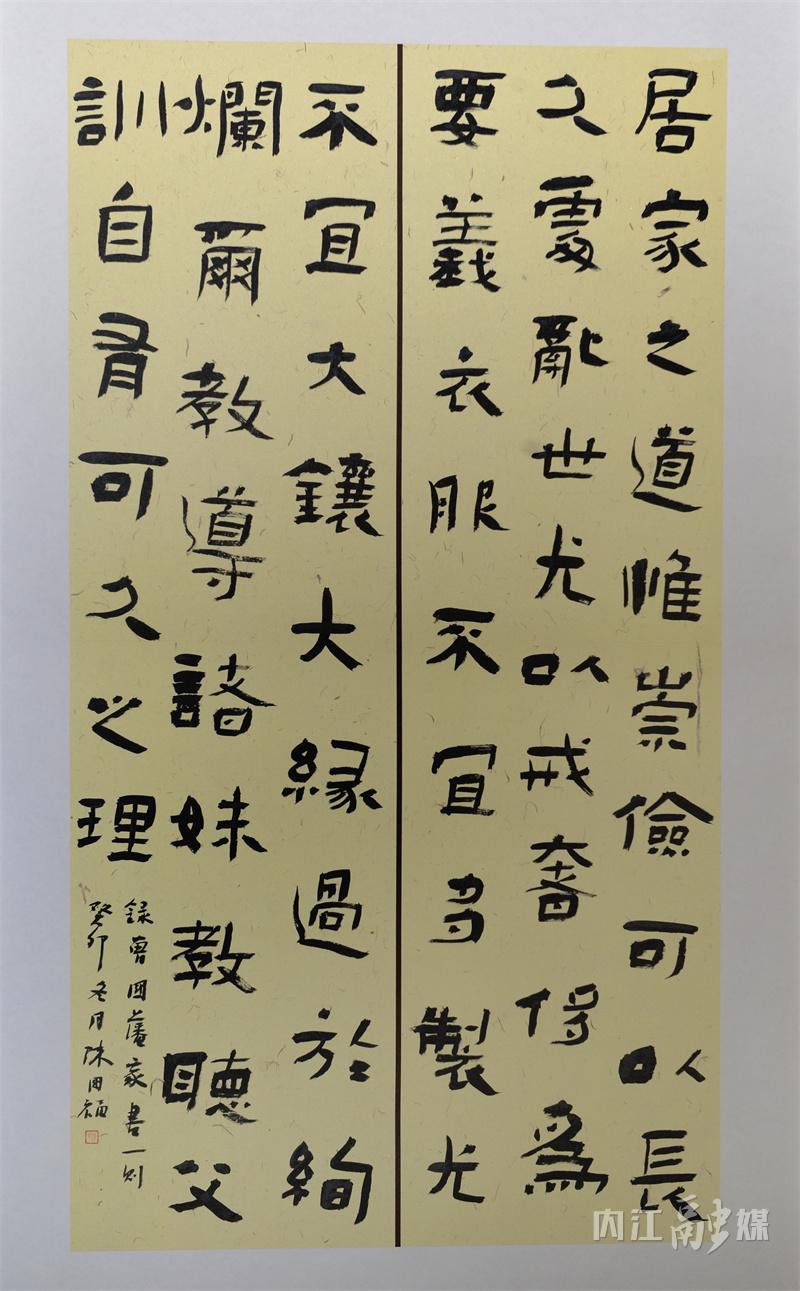 居家之道惟崇儉可以長
久處亂世尤以戒奢侈為
要義衣服不宜多製尤
不宜大鑲大緣過於絢
爛爾教導諸妹教聽父
訓自有可久之理
録曾國藩家書一則
癸卯冬月陳田
内江融媒